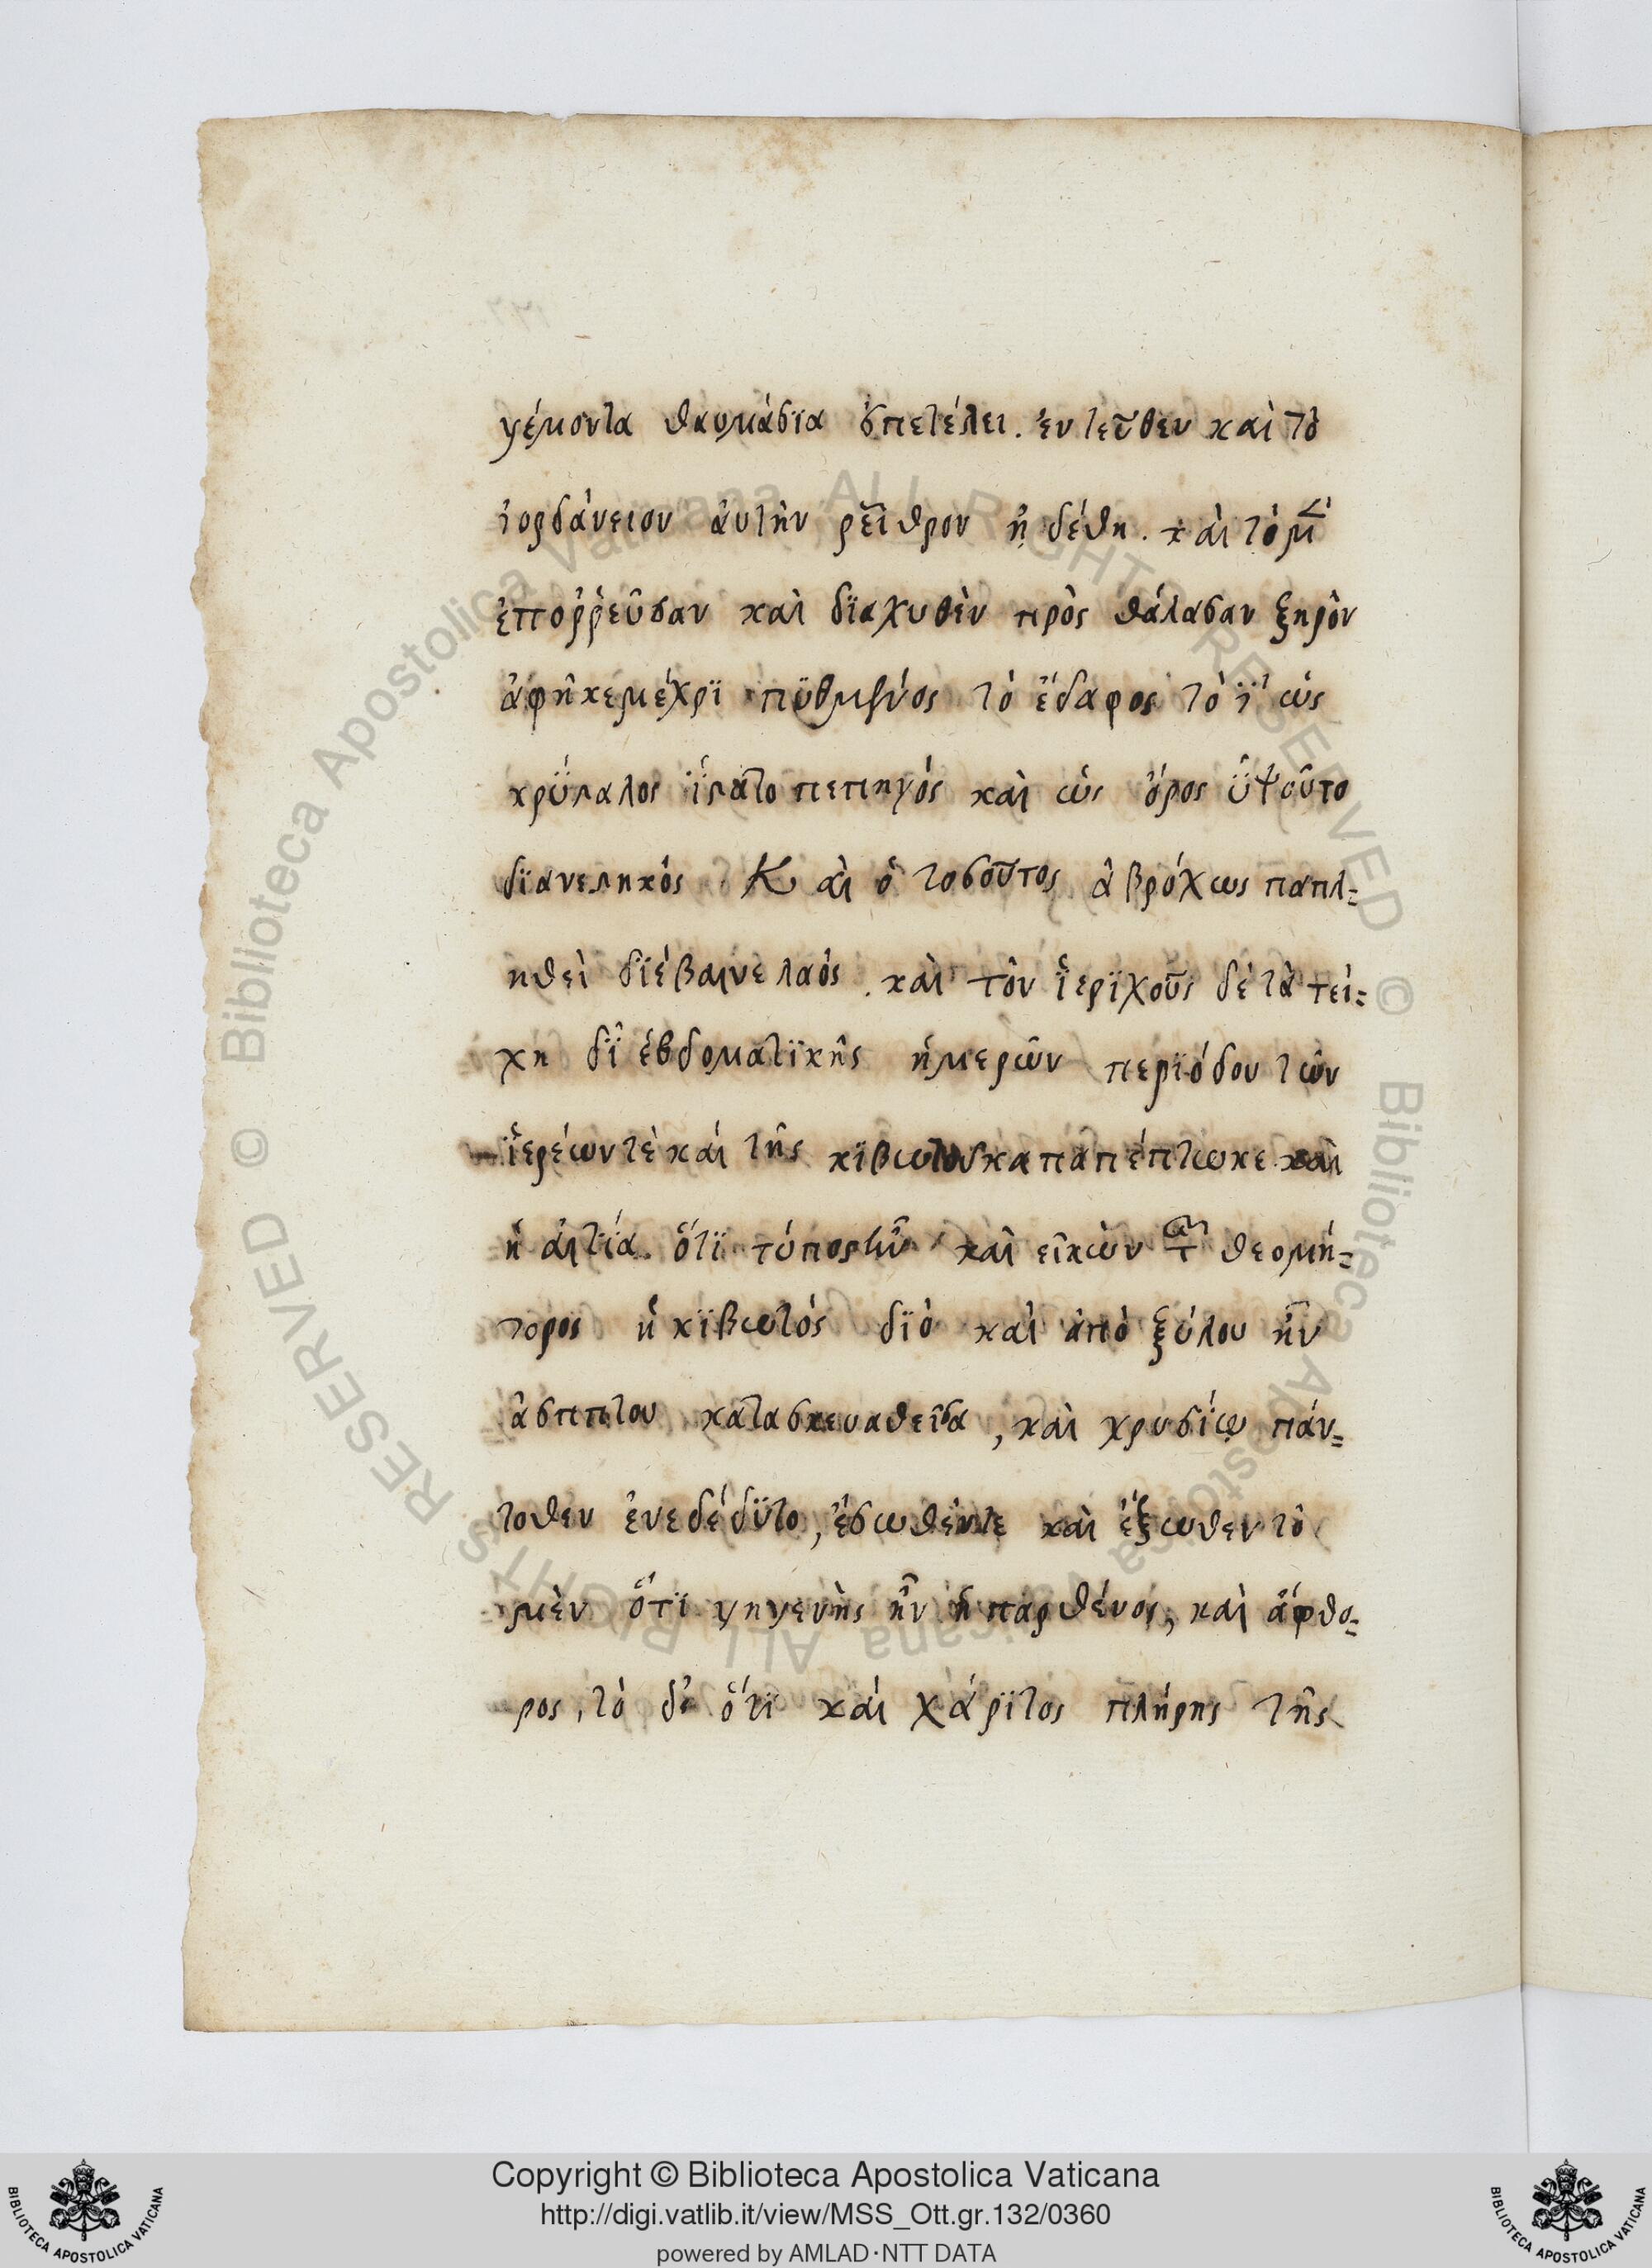 γέμοντα θαυμάσϊα ἀπετέλει. ἐντεῦθεν καὶ τὸ
ἰορδάνειον ἀυτὴν ρεῖθρον ἠδέθη. καὶ τὸ μ̅
ἐπορῤεῦσαν καὶ δϊαχυθὲν πρὸς θάλασαν ξηρὸν
ἀφῆκε μέχρϊ πϋθμένος τὸ ἔδαφος τὸ ϊ ὡς
κρΰσταλος ΐστατο πεπηγός καὶ ὡς ὄρος ϋψοῦτο
δϊανεστηκὸς. Καὶ ὁ τοσοῦτος ἀβρόχως παπλ=
ηθεὶ δϊέβαινε λαὸς. καὶ τὸν ϊερϊχοῦς δὲ τὰ τεί=
χη δϊ ἑβδοματϊκῆς ἡμερῶν περϊόδου τῶν
ϊερέων τὲ καὶ τῆς κϊβωτοῦ καταπέπτωκε καὶ
ἡ ἀιτΐα. ὅτϊ τύπος ἦν καὶ εἰκὼν τ̅ θεομή=
τορος ἡ κϊβωτός δϊὸ καὶ ἀπὸ ξύλου ἦν
ἀσηπτου κατασκευαθεῖσα, καὶ χρυσίῳ πάν=
τοθεν ἐνεδέδϋτο, ἔσωθέν τε καὶ ἔξωθεν τὸ
μὲν ὅτϊ γηγενὴς ἦν ἡ παρθένος, καὶ ἄφθο=
ρος, τὸ δ' ὅτϊ καὶ χάρϊτος πλήρης τῆς
Copyright © Biblioteca Apostolica Vaticana
http://digi.vatlib.it/view/MSS_Ott.gr.132/0360
powered by AMLAD·NTT DATA
BIBLIOTECA APOSTOLICA VATICANA
BIBLIOTECA APOSTOLICA VATICANA
© Biblioteca Apostolica Vaticana ALL RIGHTS RESERVED © Biblioteca Apostolica Vaticana ALL RIGHTS RESERVED